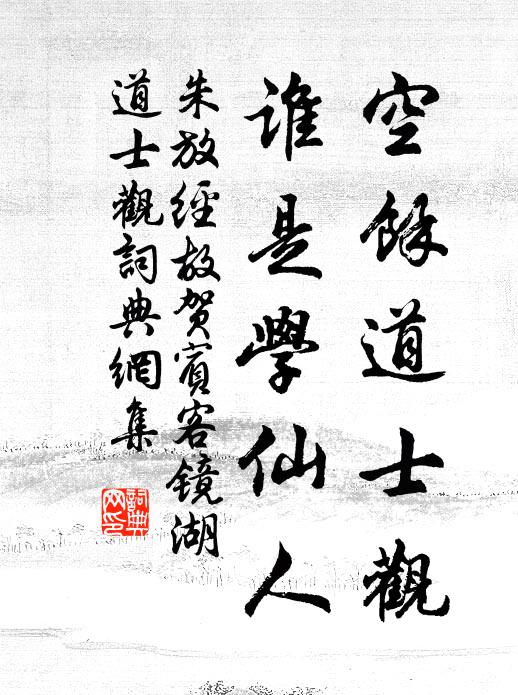 空餘道士觀
誰是學仙人
朱放經故賀賓客镜湖
道士觀詞典網集
詞典
网印